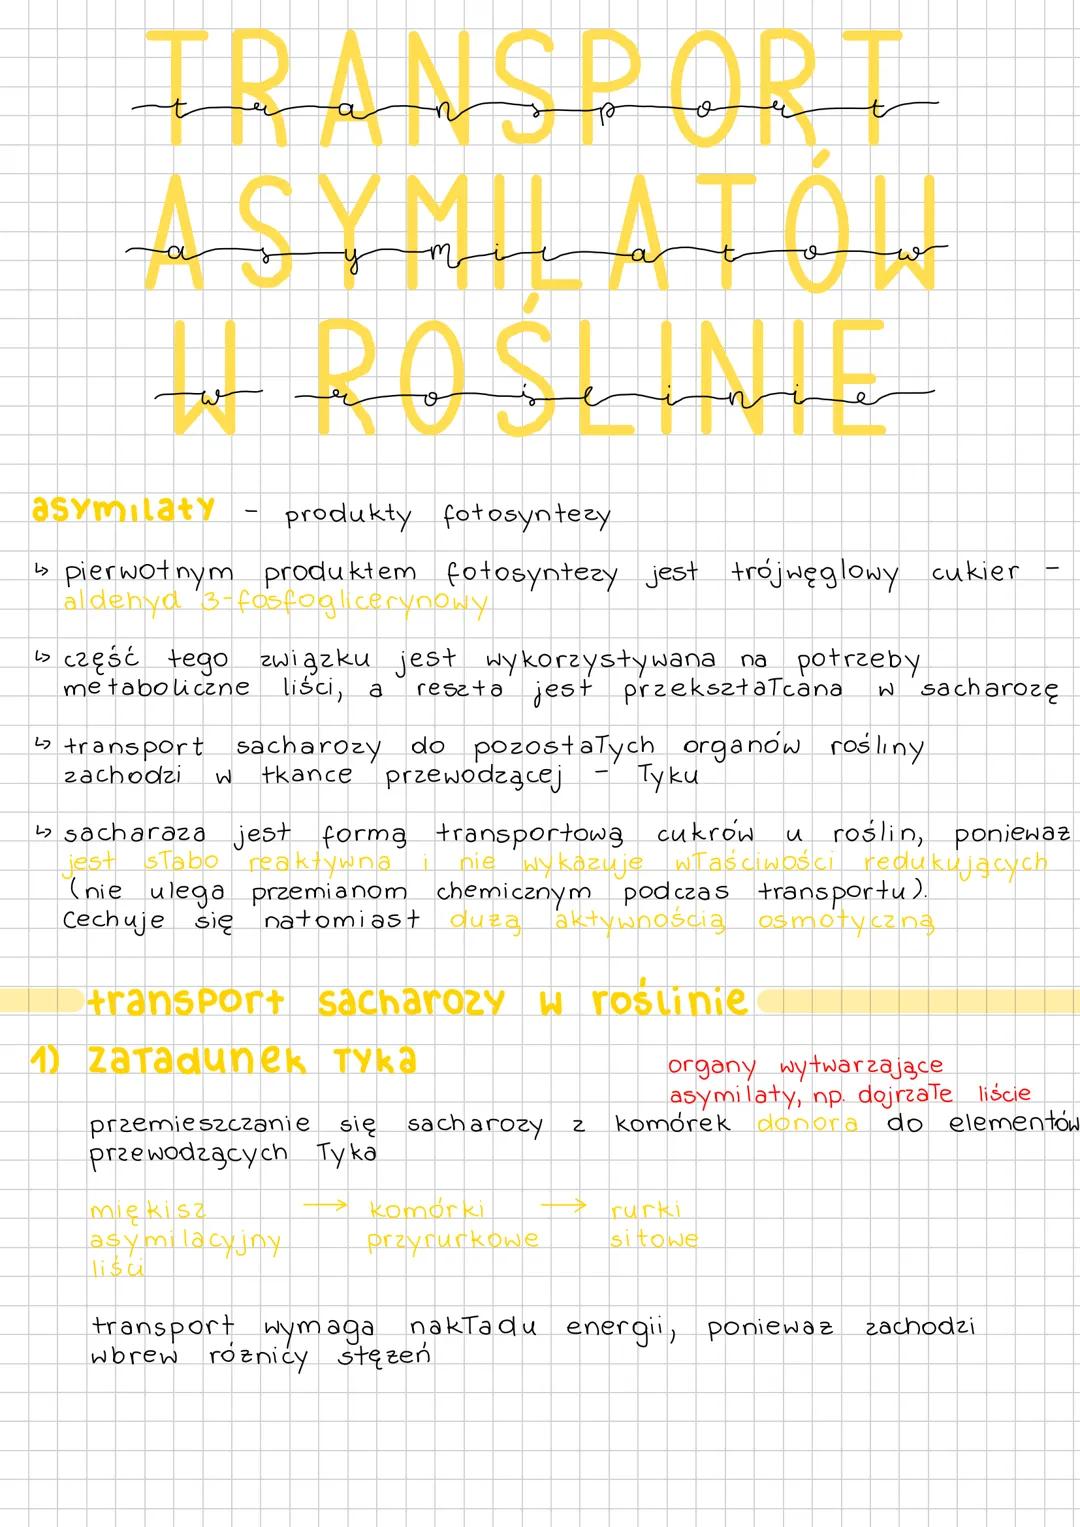 TRANSPORT
transport
ASYMILATÓW
asymilatów
W ROŚLINIE
w roślinie
asymilaty - produkty fotosyntezy
↳ pierwotnym produktem fotosyntezy jest trójwęglowy cukier -
aldehyd 3-fosfoglicerynowy
↳ część tego związku jest wykorzystywana na potrzeby
metaboliczne liści, a reszta jest przekształcana w sacharozę
↳ transport sacharozy do pozostałych organów rośliny
zachodzi w tkance przewodzącej - łyku
↳ sacharaza jest formą transportową cukrów u roślin, ponieważ
jest słabo reaktywna i nie wykazuje właściwości redukujących
(nie ulega przemianom chemicznym podczas transportu).
Cechuje się natomiast dużą aktywnością osmotyczną
transport sacharozy w roślinie
1) załadunek łyka
organy wytwarzające
asymilaty, np. dojrzałe liście
przemieszczanie się sacharozy z komórek donora do elementów
przewodzących łyka
miękisz → komórki → rurki
asymilacyjny przyrurkowe sitowe
liści
transport wymaga nakładu energii, ponieważ zachodzi
wbrew różnicy stężeń